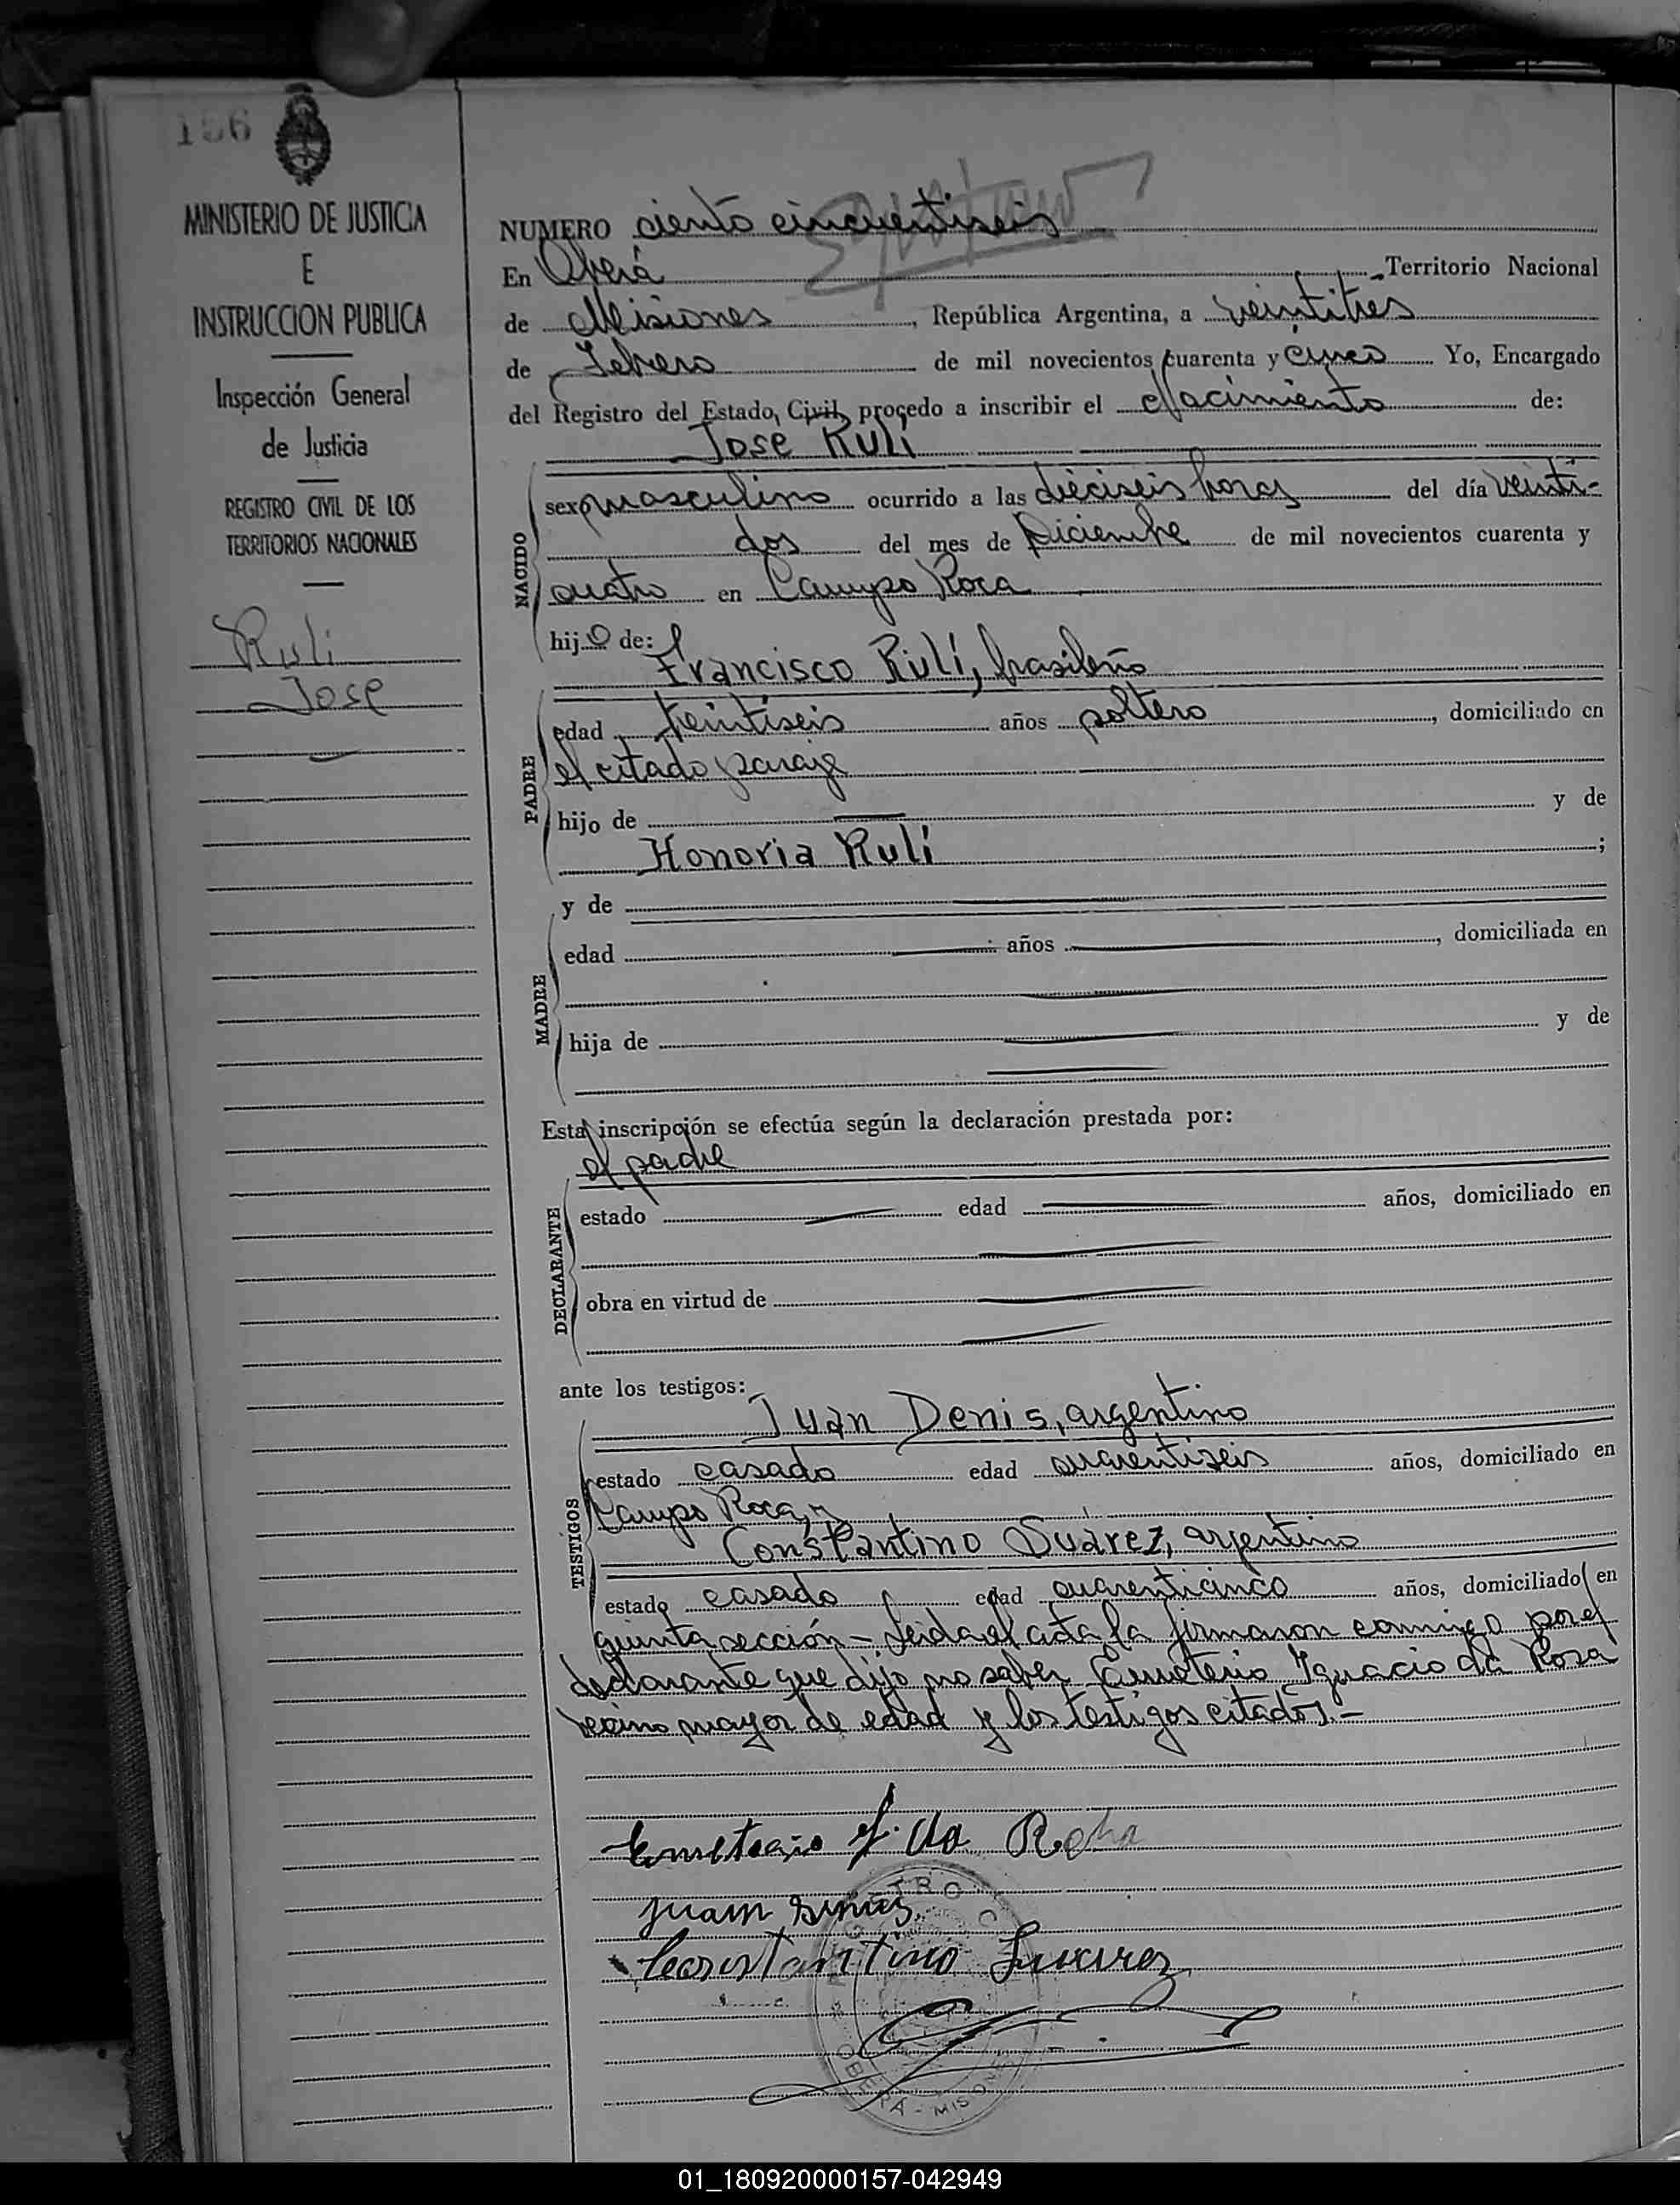 156
MINISTERIO DE JUSTICIA
E
INSTRUCCION PUBLICA
Inspección General
de Justicia
REGISTRO CIVIL DE LOS
TERRITORIOS NACIONALES
Ruli
Jose
NUMERO ciento cincuentiseis
En Oberá Territorio Nacional
de Misiones, República Argentina, a veintitres
de Febrero de mil novecientos cuarenta y cinco Yo, Encargado
del Registro del Estado Civil, procedo a inscribir el Nacimiento de:
Jose Rulí
NACIDO
sexo masculino ocurrido a las dieciseis horas del día veinti-
dos del mes de Diciembre de mil novecientos cuarenta y
cuatro en Campo Roca
hijo de:
Francisco Rulí, brasileño
PADRE
edad años soltero, domiciliado en
el citado paraje
hijo de y de
Honoria Rulí ;
MADRE
y de
edad años, domiciliada en
hija de y de
Esta inscripción se efectúa según la declaración prestada por:
el padre
DECLARANTE
estado edad años, domiciliado en
obra en virtud de
ante los testigos:
Juan Denis, argentino
TESTIGOS
estado casado edad cuarentiseis años, domiciliado en
Campo Roca, y
Constantino Suárez, argentino
estado casado edad cuarenticinco años, domiciliado en
quinta sección - Leida el acta la firmaron conmigo por el
declarante que dijo no saber Emeterio Ignacio da Rosa
vecino mayor de edad y los testigos citados.-
Emeterio I. da
Juan
Constantino Suarez
OBERÁ - MISIONES
01_180920000157-042949